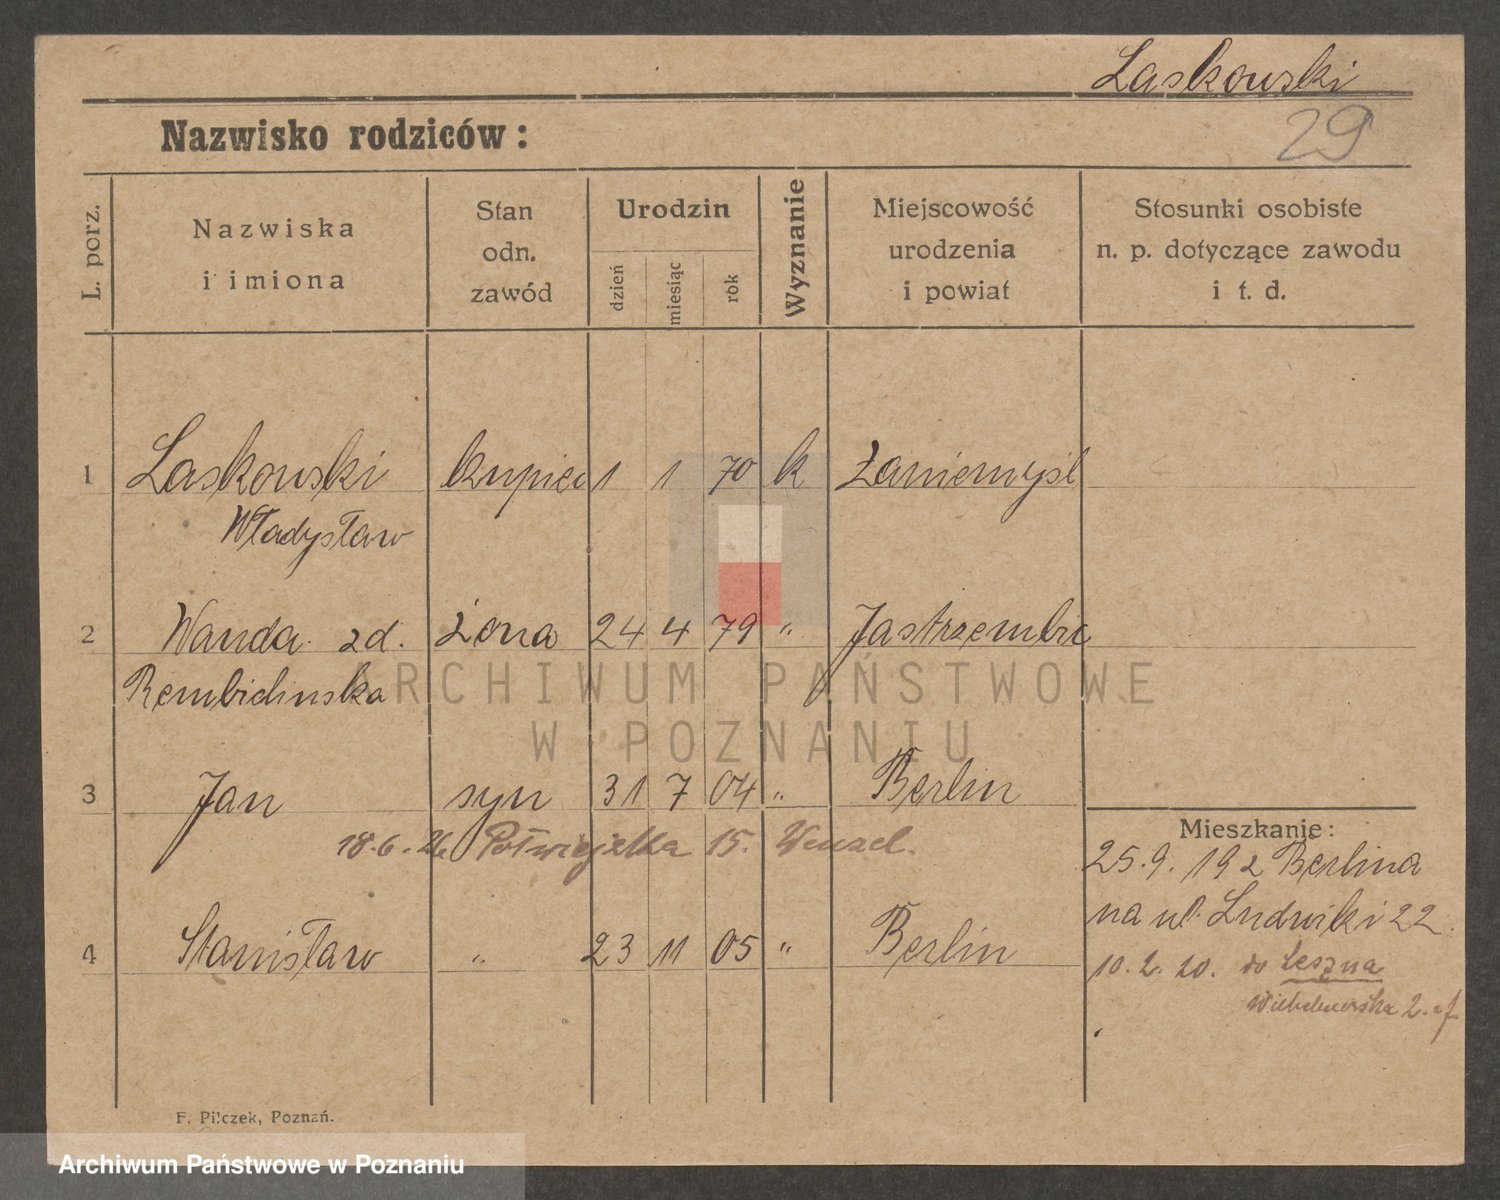 Laskowski
29
Nazwisko rodziców:
L. porz.
Nazwiska
i imiona
Stan
odn.
zawód
Urodzin
dzień
miesiąc
rok
Wyznanie
Miejscowość
urodzenia
i powiat
Stosunki osobiste
n. p. dotyczące zawodu
i t. d.
1 Laskowski kupiec 1 1 70 k Zaniemyśl
Władysław
2 Wanda zd. żona 24 4 79 " Jastrzembie
Rembielinska
3 Jan syn 31 7 04 " Berlin
18.6.26 Potwiejska 15. Wenzel.
4 Stanisław " 23 11 05 " Berlin
Mieszkanie:
25.9.19 z Berlina
na ul. Ludwiki 22.
10.2.20. do Leszna
2.
F. Pilczek, Poznań.
ARCHIWUM PAŃSTWOWE
W POZNANIU
Archiwum Państwowe w Poznaniu